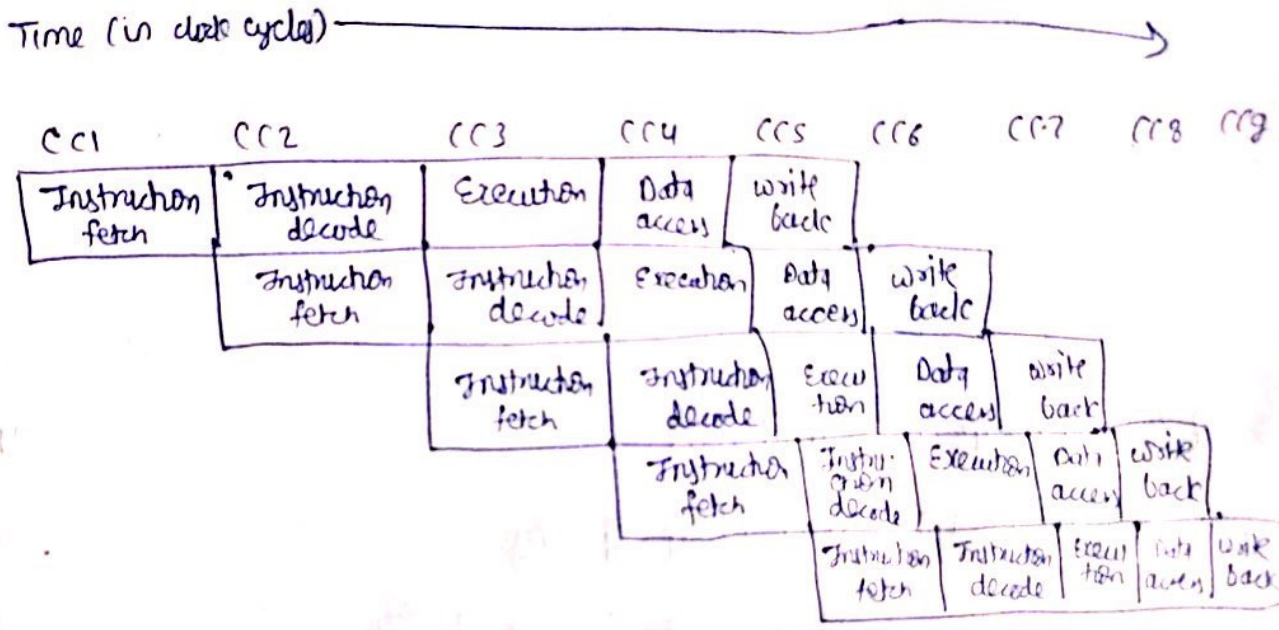 Time (in clock cycles)
CC1 CC2 CC3 CC4 CC5 CC6 CC7 CC8 CC9
Instruction fetch Instruction decode Execution Data access write back
Instruction fetch Instruction decode Execution Data access write back
Instruction fetch Instruction decode Execution Data access write back
Instruction fetch Instruction decode Execution Data access write back
Instruction fetch Instruction decode Execution Data access write back